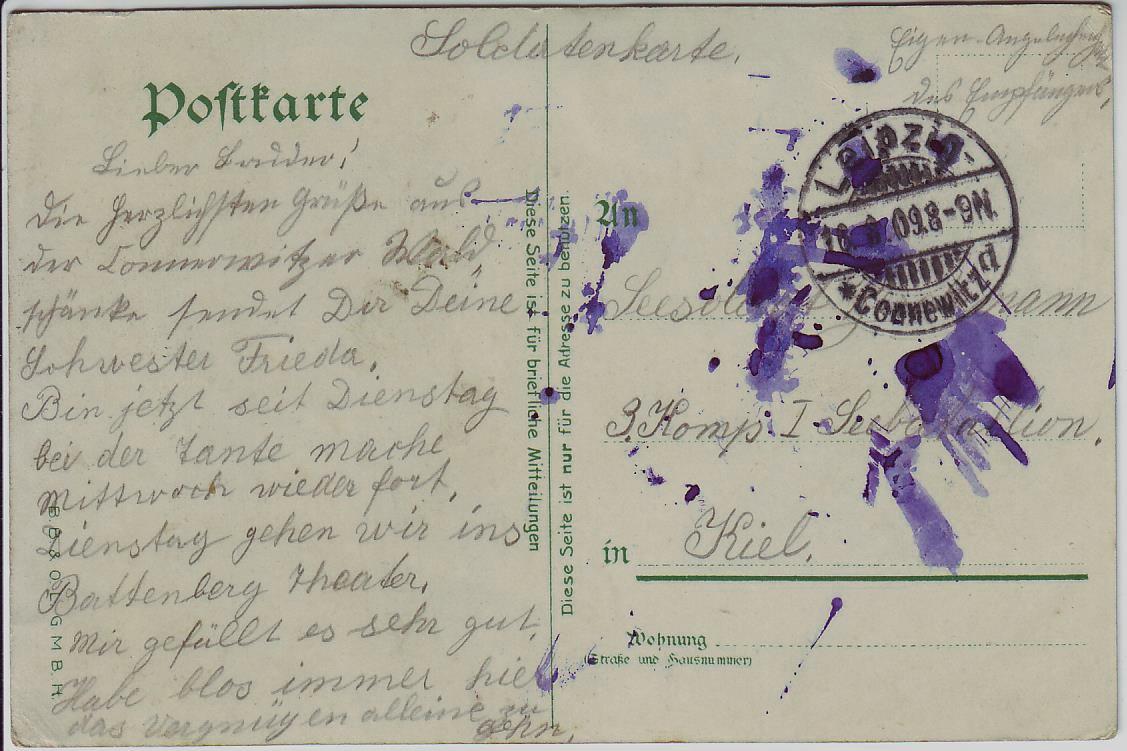 Soldatenkarte.
Eigen. Angelegenheit
des Empfängers.
Postkarte
Lieber Bruder!
Die herzlichsten Grüße aus
der Connerwitzer Wald
schänke sendet Dir Deine
Schwester Frieda.
Bin jetzt seit Dienstag
bei der Tante mache
Mittwoch wieder fort.
Dienstag gehen wir ins
Battenberg Theater.
Mir gefällt es sehr gut.
Habe blos immer hier
das Vergnügen alleine zu
gehn.
B. & O. L. G M B. H.
Diese Seite ist für briefliche Mitteilungen
Diese Seite ist nur für die Adresse zu benutzen.
Leipzig-
09.8-9N.
*Connewitz d
An
Seesoldat mann
3. Komp I Seebataillon.
in Kiel.
Wohnung
(Straße und Hausnummer)